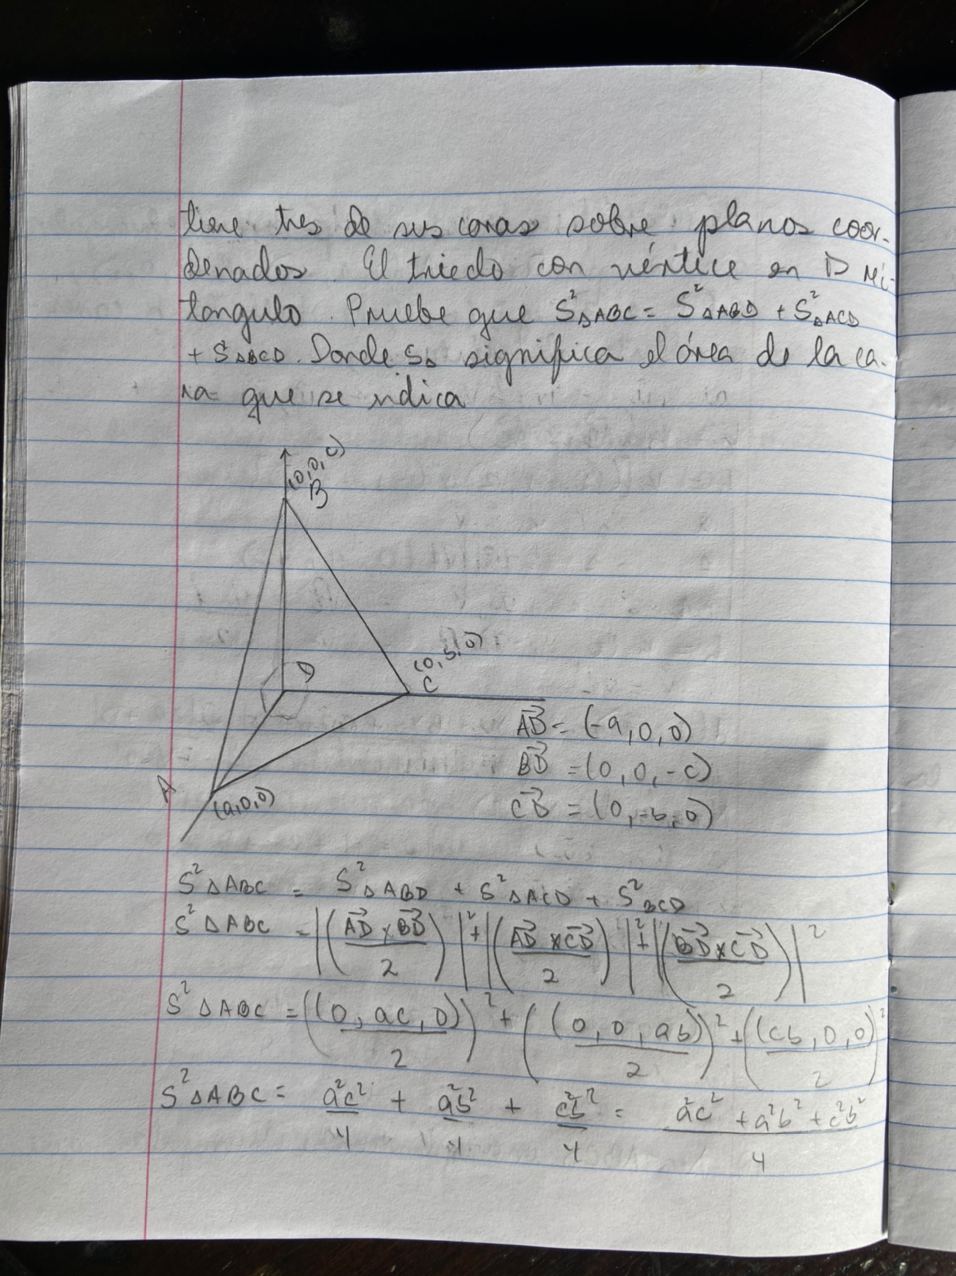 tiene tres de sus caras sobre planos coor-
denados. El triedo con vértice en D réc-
tangulo. Pruebe que S²△ABC = S²△ABD + S²△ACD
+ S²△BCD. Donde S△ significa el área de la ca-
ra que se indica
(0,0,c)
B
D
(0,b,0)
C
A
(a,0,0)
AD⃗ = (-a,0,0)
BD⃗ = (0,0,-c)
CD⃗ = (0,-b,0)
S²△ABC = S²△ABD + S²△ACD + S²BCD
S²△ABC = |((AD⃗ × BD⃗)/2)|² + |((AD⃗ × CD⃗)/2)|² + |((BD⃗ × CD⃗)/2)|²
S²△ABC = ((0, ac, 0)/2)² + ((0, 0, ab)/2)² + ((cb, 0, 0)/2)²
S²△ABC = a²c²/4 + a²b²/4 + c²b²/4 = (a²c² + a²b² + c²b²)/4